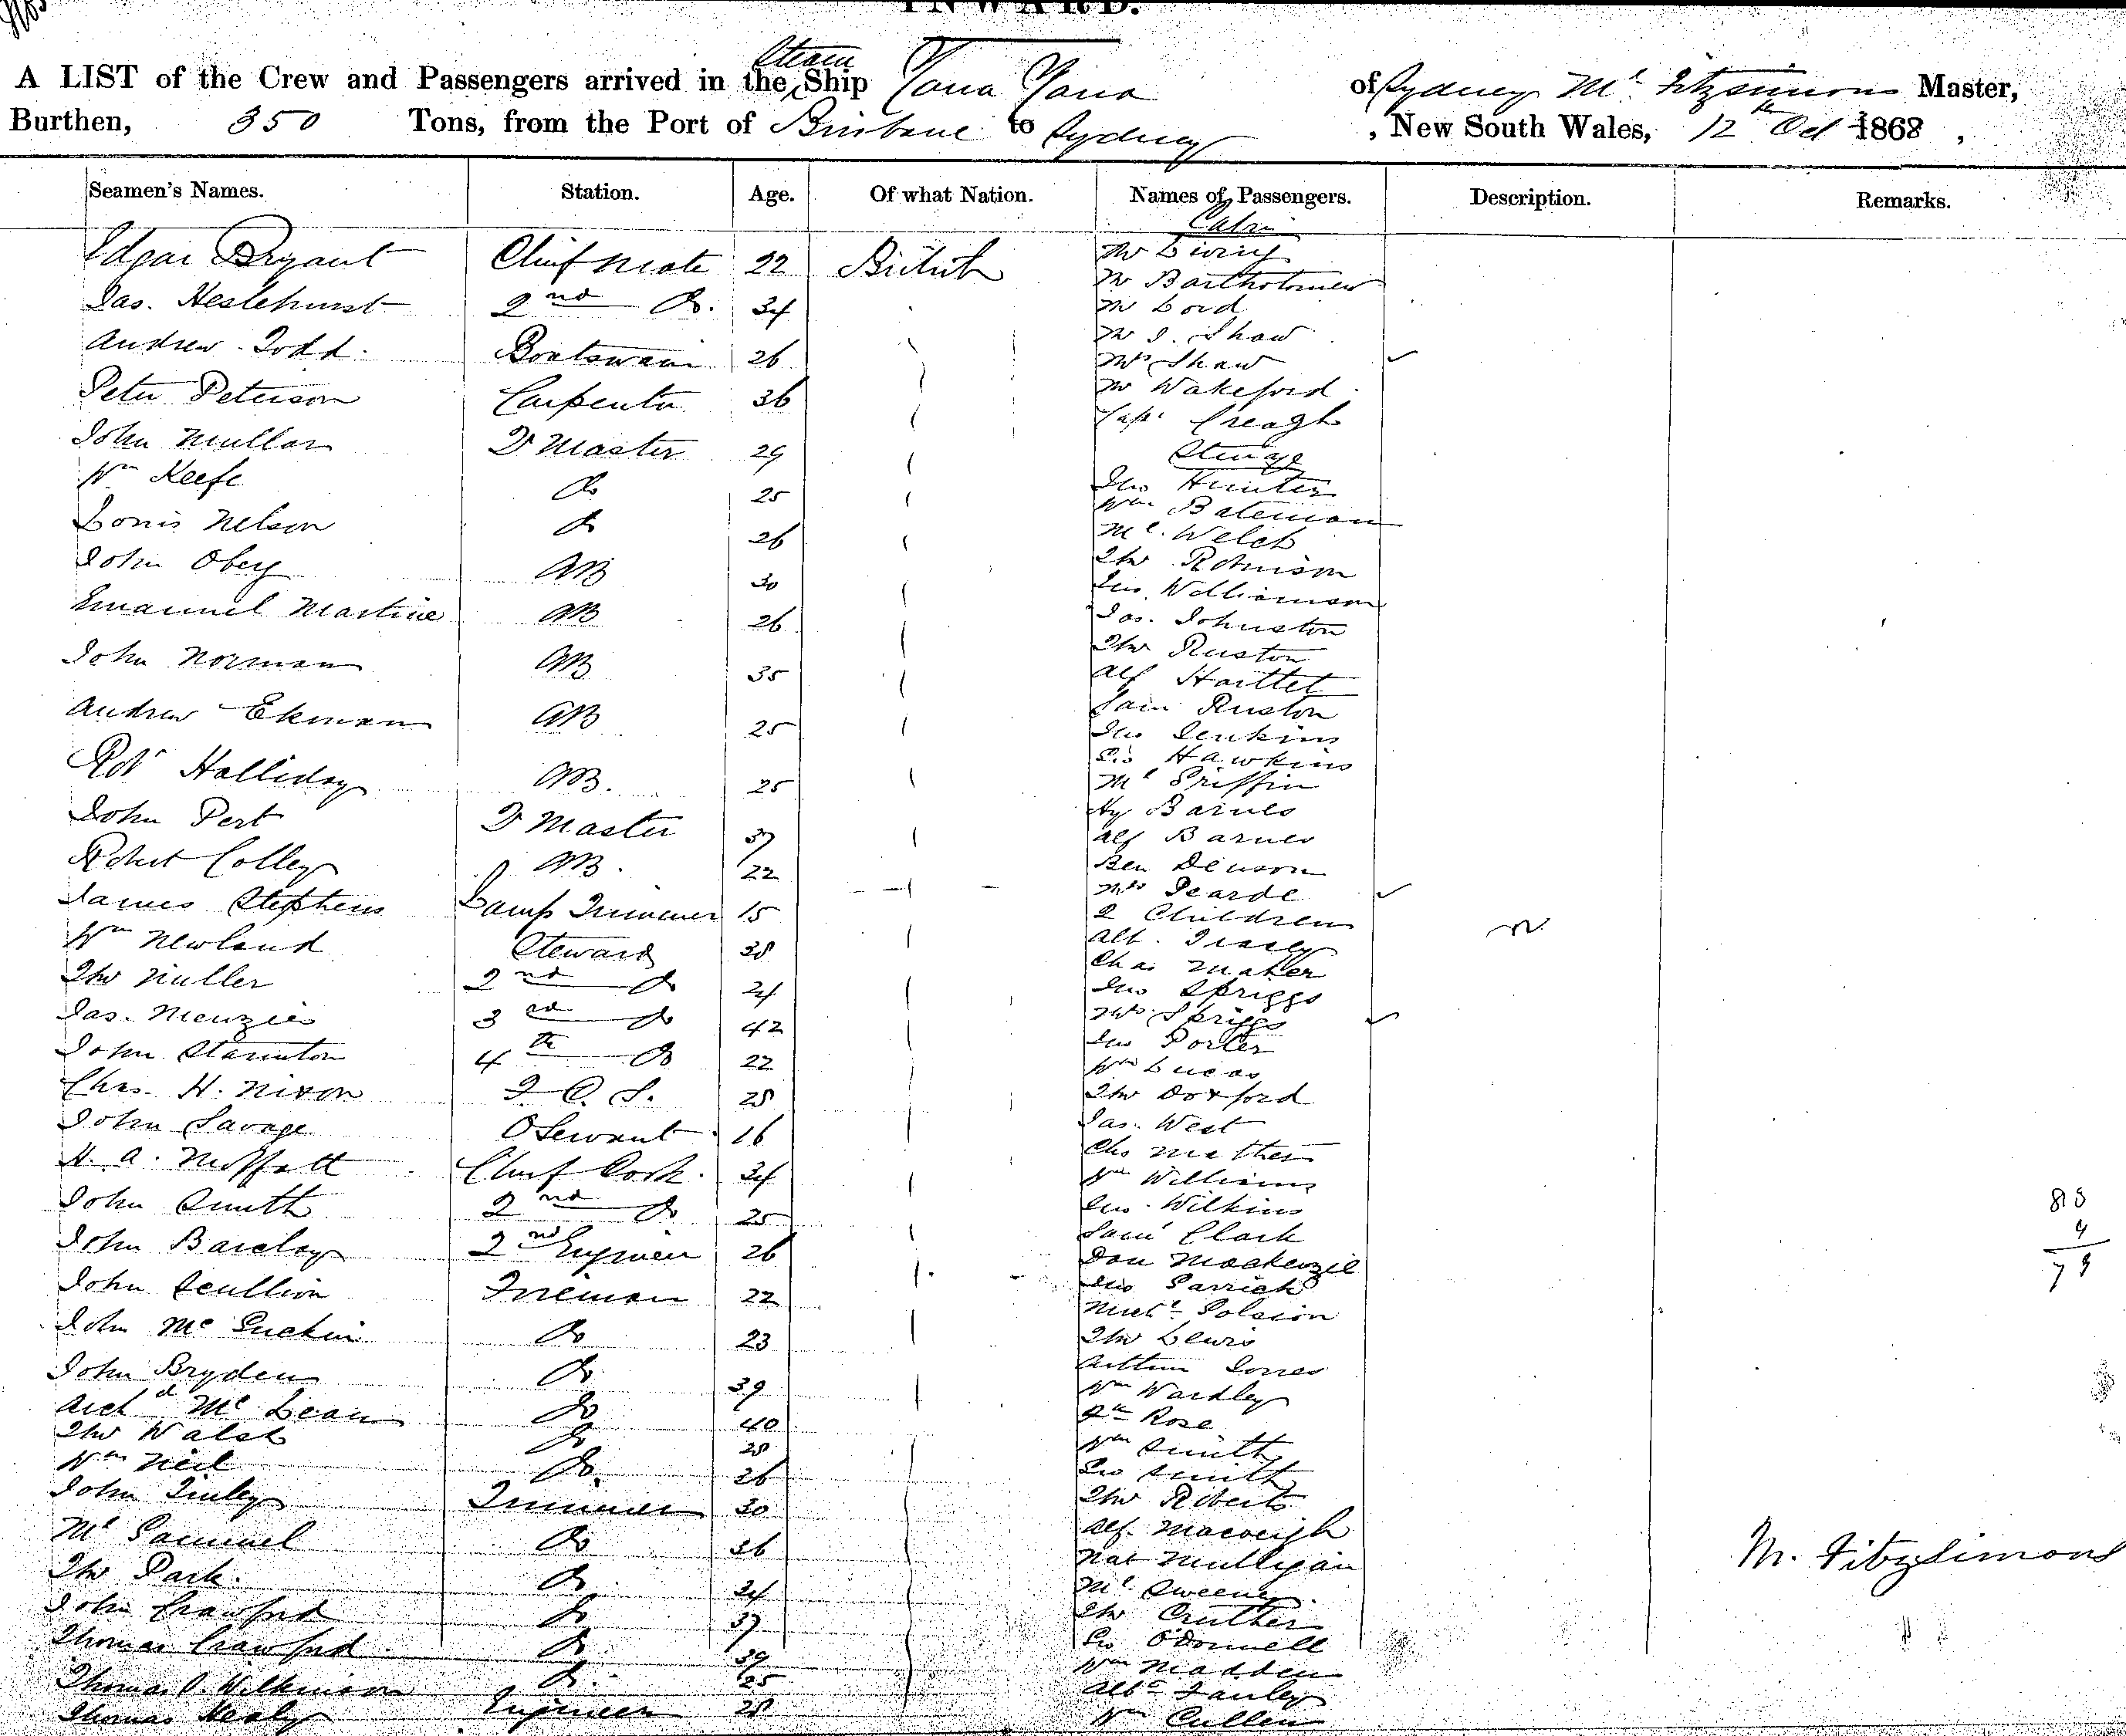 INWARD.
A LIST of the Crew and Passengers arrived in the Steam Ship Yarra Yarra of Sydney M. Fitzsimons Master,
Burthen, 350 Tons, from the Port of Brisbane to Sydney, New South Wales, 12th Oct 1868,
Seamen's Names. Station. Age. Of what Nation. Names of Passengers. Description. Remarks.
Cabin
Edgar Bryant Chief Mate 22 British
Jas. Heslehurst 2nd Do. 34
Andrew Todd. Boatswain 26
Peter Peterson Carpenter 36
John Mullar Master 29
Wm Keefe Do 25
Louis Nelson Do 26
John Oberg AB 30
Emanuel Martine AB 26
John Norman AB 35
Andrew Ekman AB 25
Robt Halliday AB. 25
John Pert Master 37
Robert Colley AB. 22
James Stephens Lamp Trimmer 15
Wm Newland Steward 38
Tho Muller 2nd Do 24
Jas. Menzies 3rd Do 42
John Staunton 4th Do 22
Chas. H. Nixon 28
John Savage O Servant 16
H. A. Moffatt Chief Cook. 34
John Smith 2nd Do 25
John Barclay 2nd Engineer 26
John Scullion Fireman 22
John McGuckin Do 23
John Bryden Do 39
Archd McLean Do 40
Tho Walsh Do 28
Wm Neil Do. 26
John Finley Trimmer 30
Ml Samuel Do 36
Tho Park. Do 34
John Crawford Do 37
Thomas Crawford Do 39
Thomas Wilkinson Do. 25
Thomas Healy Engineer 28
Mr Living
Mr Bartholomew
Mr Lord
Mr J. Shaw
Mrs Shaw
Mr Wakeford
Capt Creagh
Steerage
Jno Hunter
Wm Bateman
Ml. Welch
Tho Robinson
Jno. Williamson
Jas. Johnston
Tho Ruston
Alf Harttet
Sam Ruston
Jno Jenkins
Geo Hawkins
Ml Griffin
Hy Barnes
Alf Barnes
Ben Denson
Mrs Pearde
2 Children
Alb. Tracey
Chas Maher
Jno Spriggs
Mrs Spriggs
Jno Porter
Wm Lucas
Tho Doxford
Jas. West
Chs Mather
Wm Williams
Jno. Wilkins
Saml Clark
Don Mackenzie
Jno Garrick
Tho Lewis
Arthur Jones
Wm Wardley
Rose
Wm Smith
Geo Smith
Tho Roberts
Alf. Macveigh
Nat Mulligan
Ml. Sweeney
Tho Cruther
Geo O'Donnell
Wm Madden
Albt Fanley
Wm Cullen
83
4
79
M. Fitzsimons